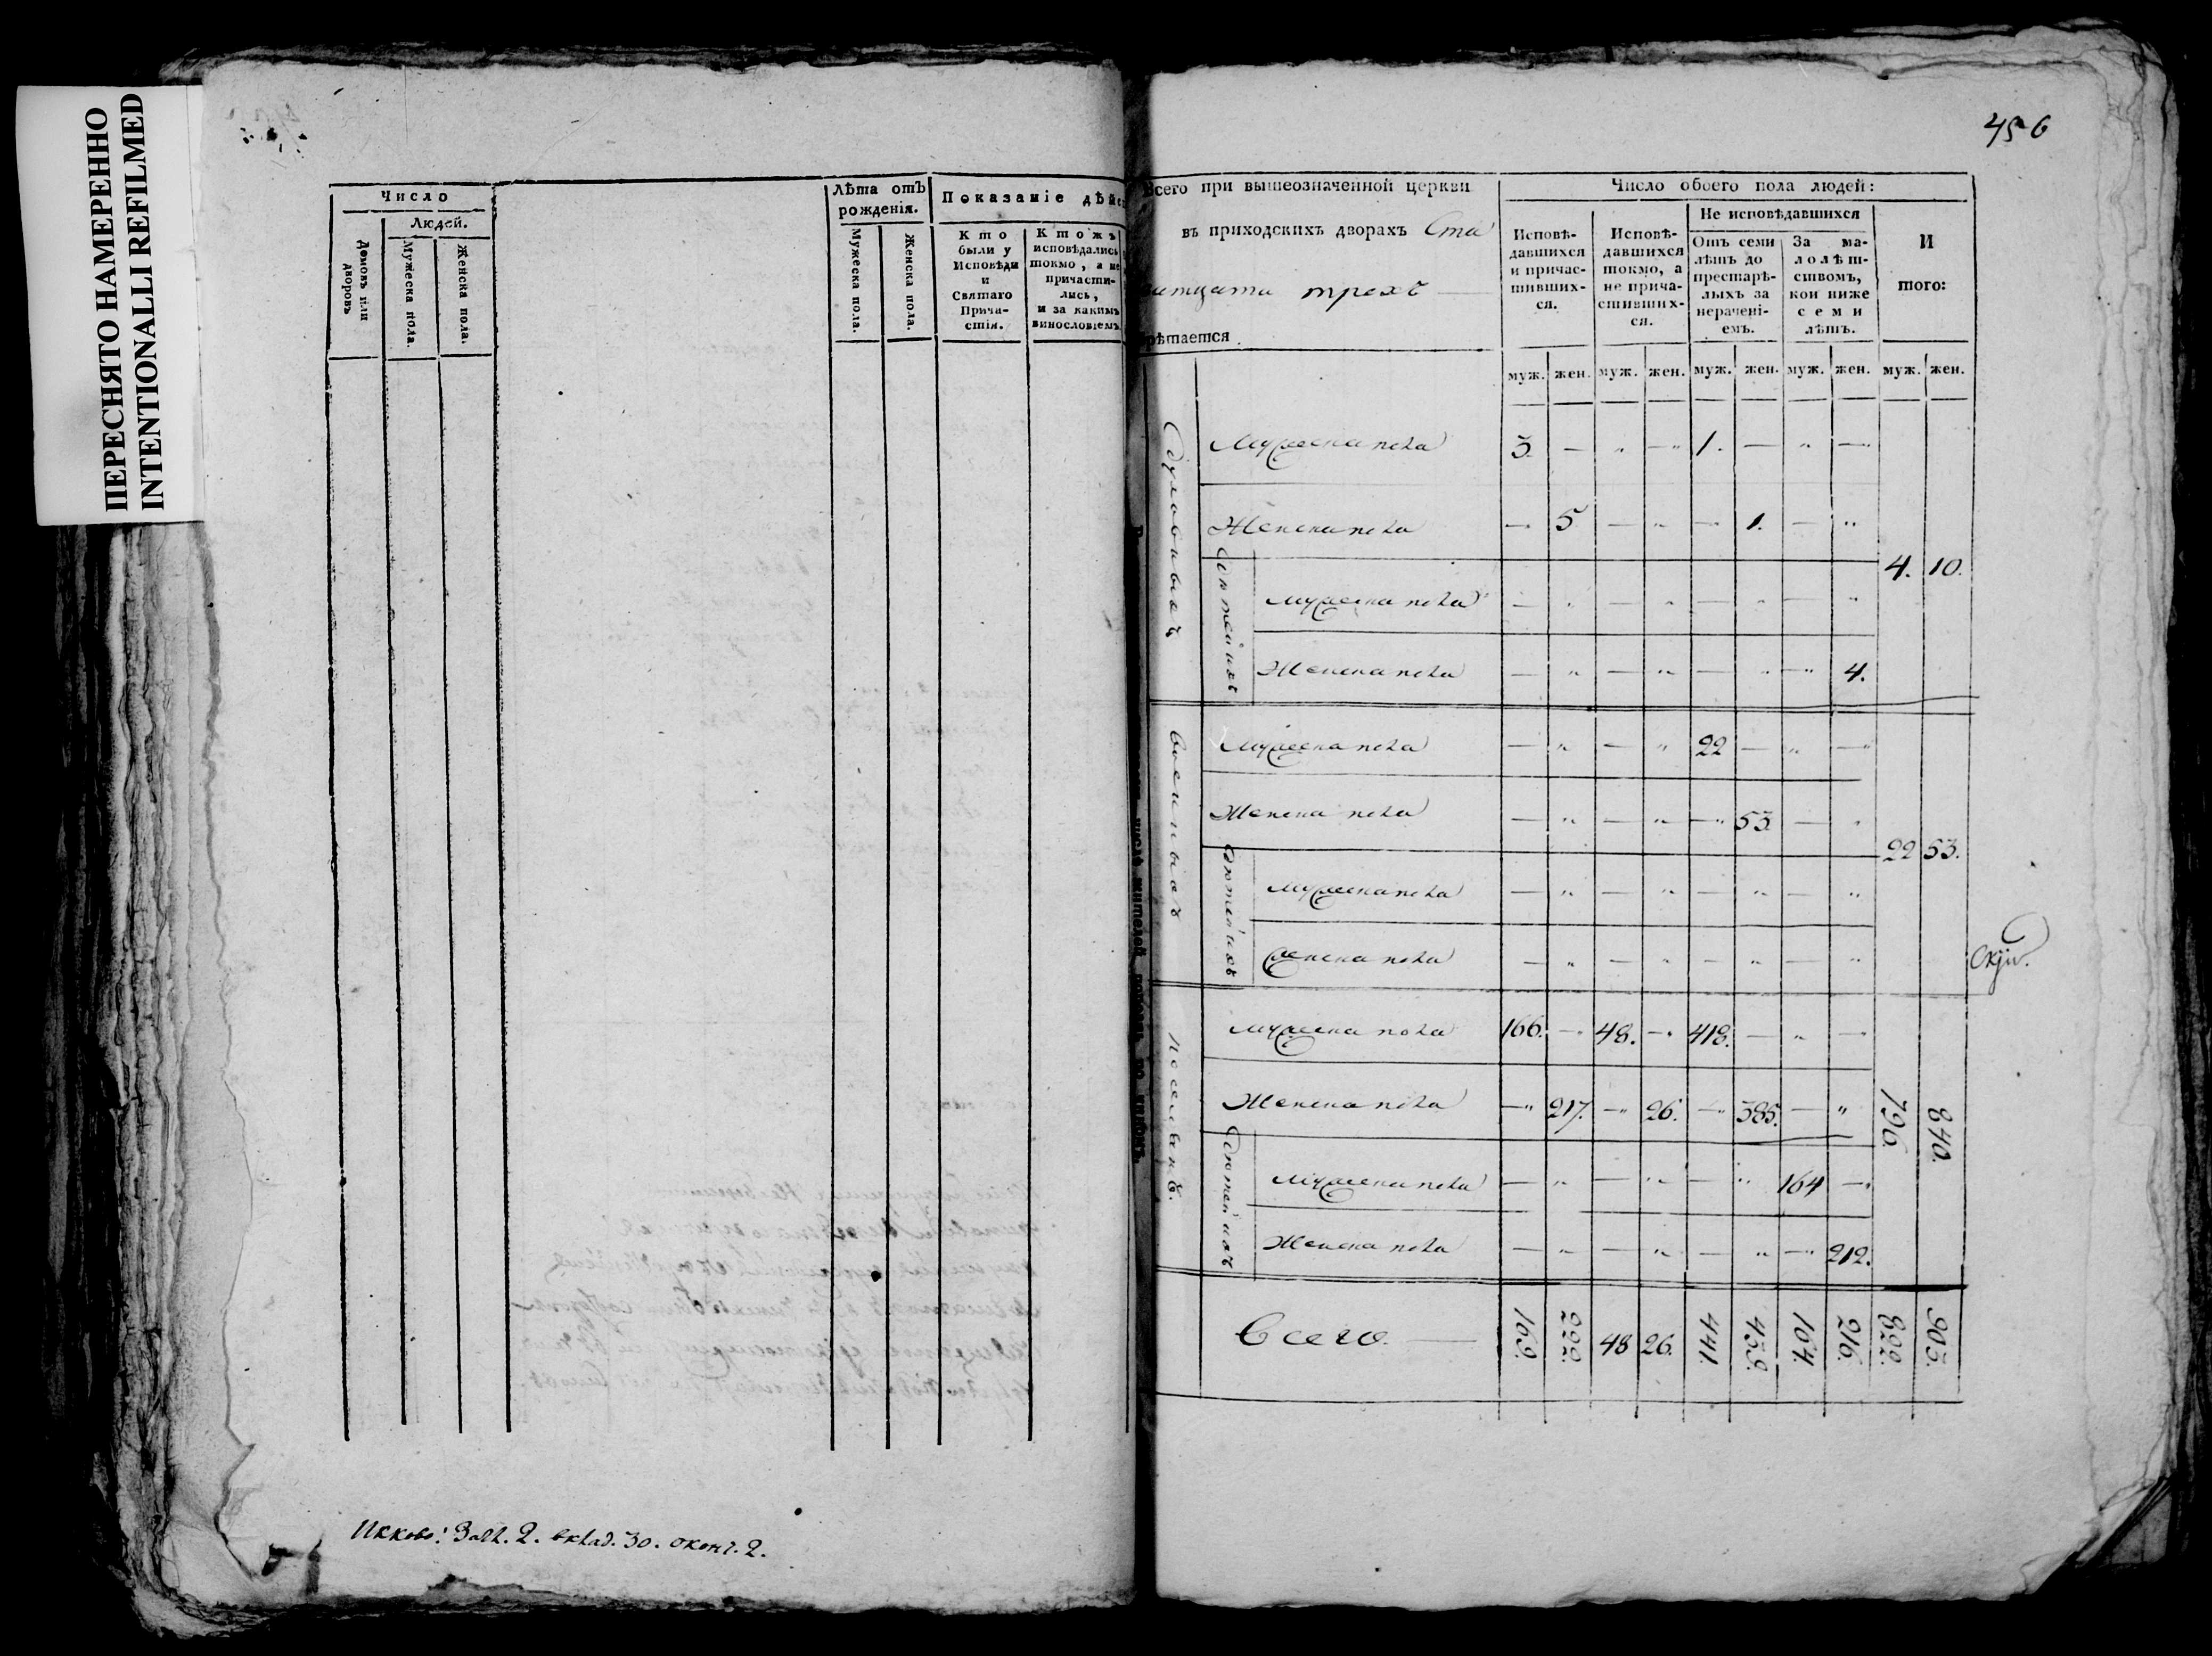 ПЕРЕСНЯТО НАМЕРЕННО
INTENTIONALLI REFILMED
Число
Людей.
Домовъ или дворовъ
Мужеска пола.
Женска пола.
Лѣта отъ рожденія.
Мужеска пола.
Женска пола.
Показаніе дѣй
Кто были у Исповѣди и Святаго Прича-стія.
Ктожъ исповѣдались токмо, а не причасти-лись, и за какимъ винословіемъ
Икково: Загл. 2. вклад. 30. оконч. 2.
456
Всего при вышеозначенной церкви
въ приходскихъ дворахъ Ста
трехъ —
рѣтается
Число обоего пола людей:
Исповѣ-давшихся и причас-тивших-ся.
Исповѣ-давшихся токмо, а не прича-стивших-ся.
Не исповѣдавшихся
Отъ семи лѣтъ до престарѣ-лыхъ за нерачені-емъ.
За ма-лолѣт-ствомъ, кои ниже семи лѣтъ.
И того:
муж. жен. муж. жен. муж. жен. муж. жен. муж. жен.
Духовныхъ
Мужеска пола 3. — " — 1. — " —
Женска пола — 5 — " — 1. — "
4. 10.
дѣтей ихъ
мужеска пола — " — " — " — "
Женска пола — " — " — " — 4.
военныхъ
Мужеска пола — " — " 22 — " —
Женска пола — " — " — 53 — "
22 53.
дѣтей ихъ
мужеска пола — " — " — " — "
женска пола — " — " — " — "
поселянъ.
мужеска пола 166. — 48. — 418. — " —
Женска пола — 217. — 26. — 385. — "
796. 840.
дѣтей ихъ
мужеска пола — " — " — " 164 —
Женска пола — " — " — " — 212.
Всего — 169. 222. 48 26. 441. 439. 164. 216. 822. 903.